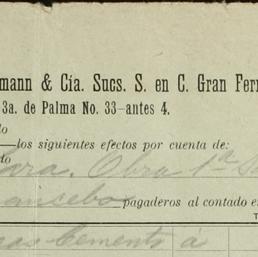 mann & Cía. Sucs. S. en C. Gran Ferr
3a. de Palma No. 33-antes 4.
do
los siguientes efectos por cuenta de:
do
Obra 1ª
pagaderos al contado e
T
Cemento á